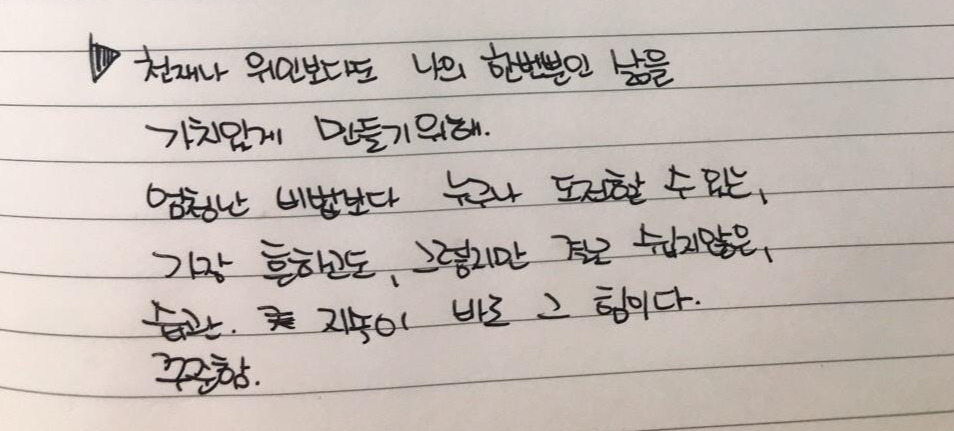 천재나 위인보다도 나의 한번뿐인 삶을
가치있게 만들기위해.
엄청난 비법보다 누구나 도전할 수 있는,
가장 흔하고도, 그렇지만 결코 쉽지않은,
습관. 지속이 바로 그 힘이다.
꾸준함.